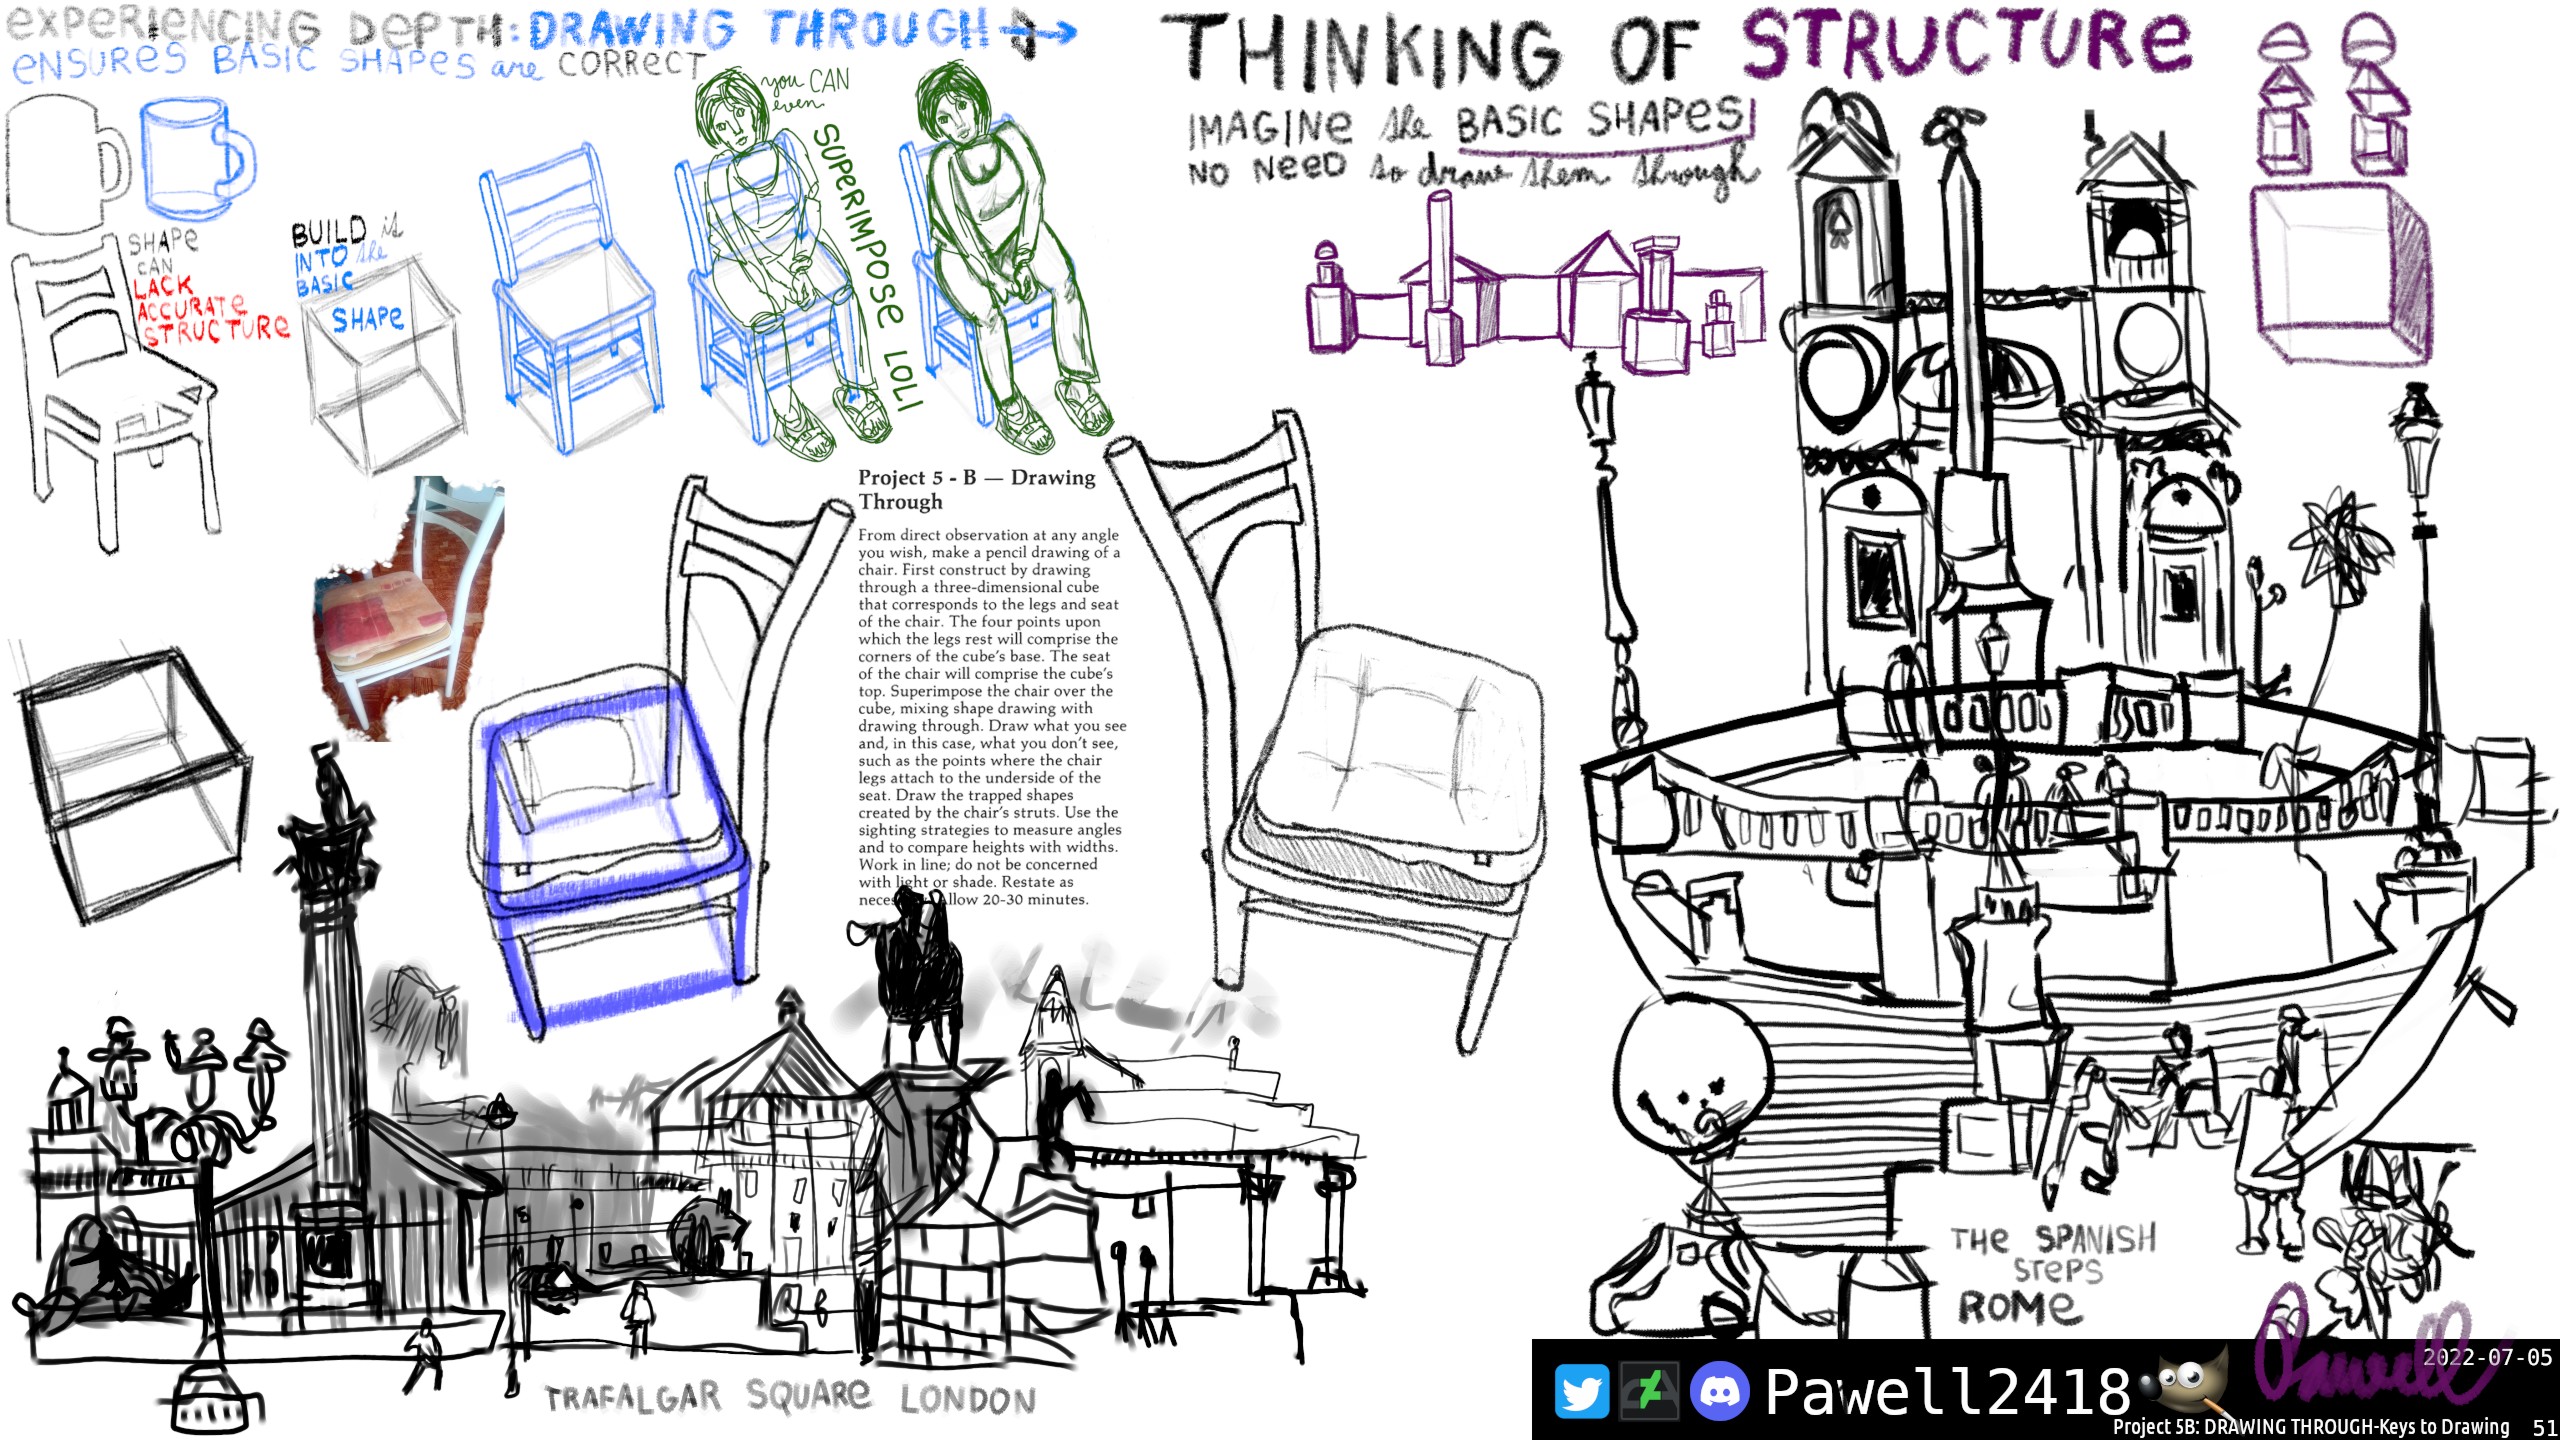 EXPERIENCING DEPTH: DRAWING THROUGH
ENSURES BASIC SHAPES are CORRECT
SHAPE
CAN
LACK
ACCURATE
STRUCTURE
BUILD is
INTO the
BASIC
SHAPE
you CAN
even
SUPERIMPOSE LOL!
Project 5 - B — Drawing
Through
From direct observation at any angle
you wish, make a pencil drawing of a
chair. First construct by drawing
through a three-dimensional cube
that corresponds to the legs and seat
of the chair. The four points upon
which the legs rest will comprise the
corners of the cube's base. The seat
of the chair will comprise the cube's
top. Superimpose the chair over the
cube, mixing shape drawing with
drawing through. Draw what you see
and, in this case, what you don't see,
such as the points where the chair
legs attach to the underside of the
seat. Draw the trapped shapes
created by the chair's struts. Use the
sighting strategies to measure angles
and to compare heights with widths.
Work in line; do not be concerned
with light or shade. Restate as
llow 20-30 minutes.
TRAFALGAR SQUARE LONDON
THINKING OF STRUCTURE
IMAGINE the BASIC SHAPES
NO NEED to draw them through
THE SPANISH
STEPS
ROME
Pawell
2022-07-05
Pawell2418
Project 5B: DRAWING THROUGH-Keys to Drawing 51